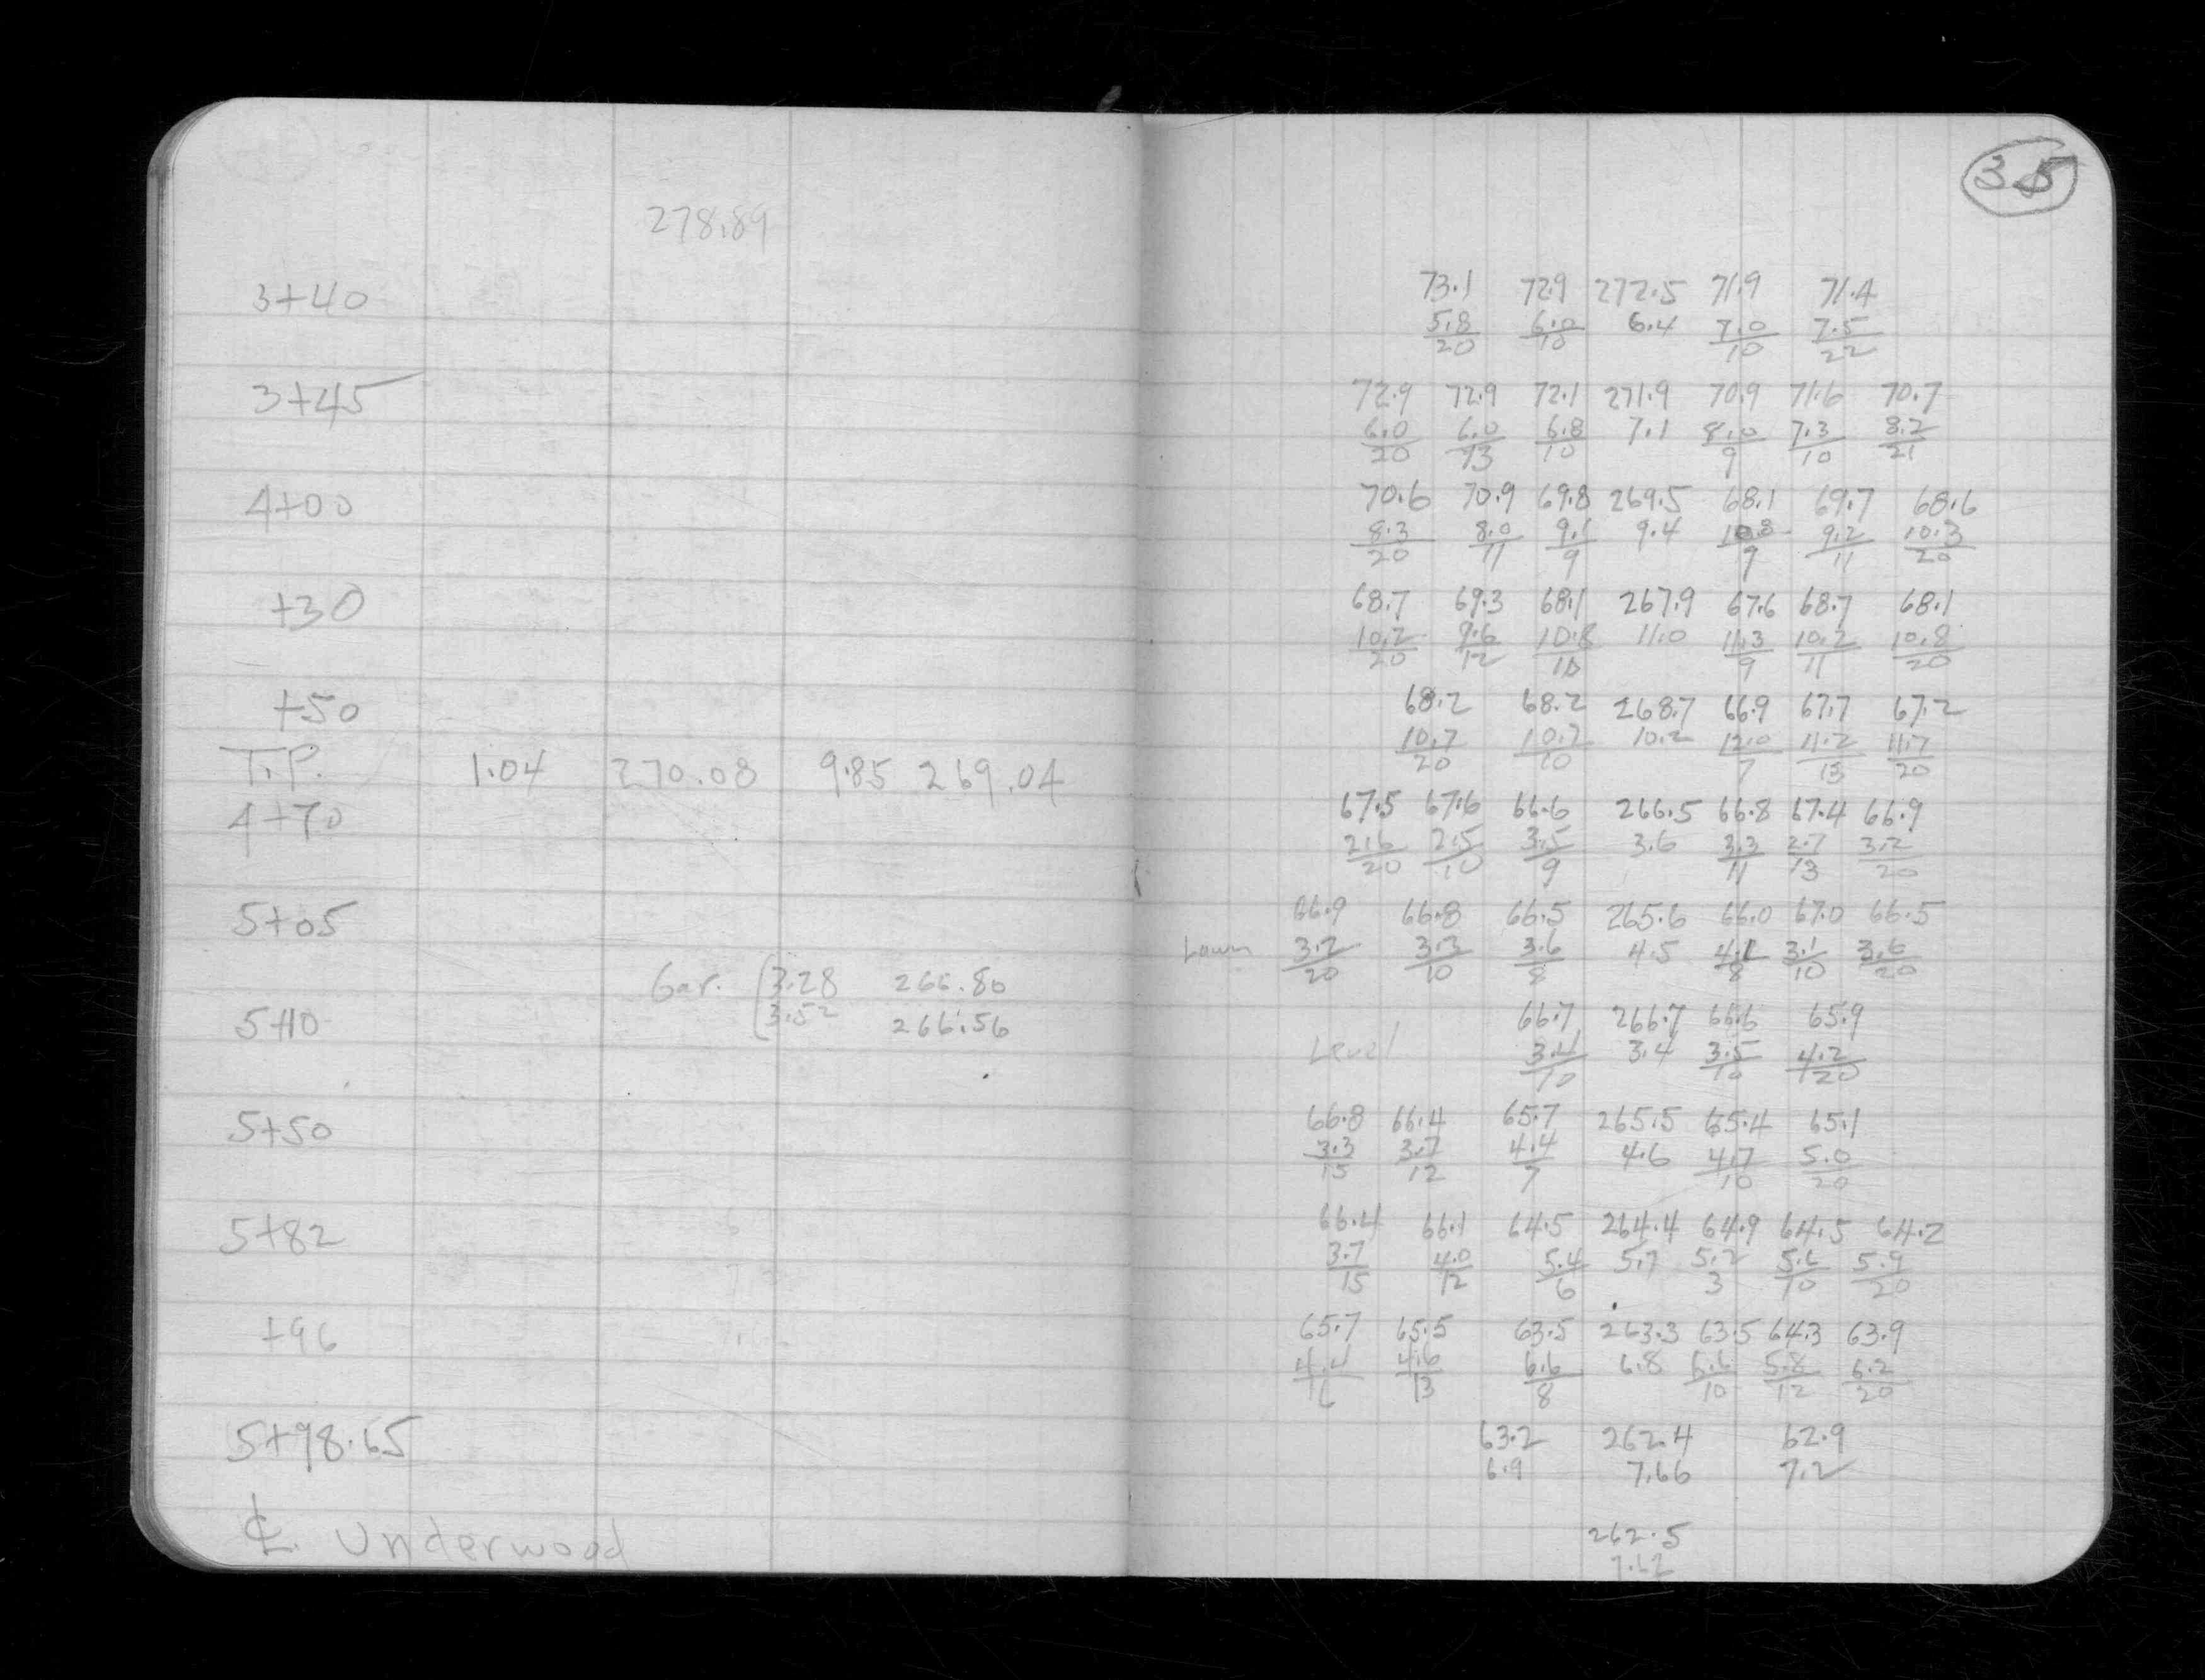 35
278.89
3+40 73.1 72.9 272.5 71.9 71.4
5.8/20 6.0/10 6.4 7.0/10 7.5/22
3+45 72.9 72.9 72.1 271.9 70.9 71.6 70.7
6.0/20 6.0/13 6.8/10 7.1 8.0/9 7.3/10 8.2/21
4+00 70.6 70.9 69.8 269.5 68.1 69.7 68.6
8.3/20 8.0/11 9.1/9 9.4 10.8/9 9.2/11 10.3/20
+30 68.7 69.3 68.1 267.9 67.6 68.7 68.1
10.2/20 9.6/12 10.8/10 11.0 11.3/9 10.2/11 10.8/20
+50 68.2 68.2 268.7 66.9 67.7 67.2
10.7/20 10.7/10 10.2 12.0/7 11.2/13 11.7/20
T.P. 1.04 270.08 9.85 269.04
4+70 67.5 67.6 66.6 266.5 66.8 67.4 66.9
2.6/20 2.5/10 3.5/9 3.6 3.3/11 2.7/13 3.2/20
5+05 66.9 66.8 66.5 265.6 66.0 67.0 66.5
Lawn 3.2/20 3.3/10 3.6/8 4.5 4.1/8 3.1/10 3.6/20
Gar. 3.28 266.80
3.52 266.56
5+10 66.7 266.7 66.6 65.9
Level 3.4/10 3.4 3.5/10 4.2/20
5+50 66.8 66.4 65.7 265.5 65.4 65.1
3.3/15 3.7/12 4.4/7 4.6 4.7/10 5.0/20
5+82 66.4 66.1 64.5 264.4 64.9 64.5 64.2
3.7/15 4.0/12 5.4/6 5.7 5.2/3 5.6/10 5.9/20
+96 65.7 65.5 63.5 263.3 63.5 64.3 63.9
4.4/16 4.6/13 6.6/8 6.8 6.6/10 5.8/12 6.2/20
5+98.65 63.2 262.4 62.9
6.9 7.66 7.2
℄ Underwood 262.5
7.62